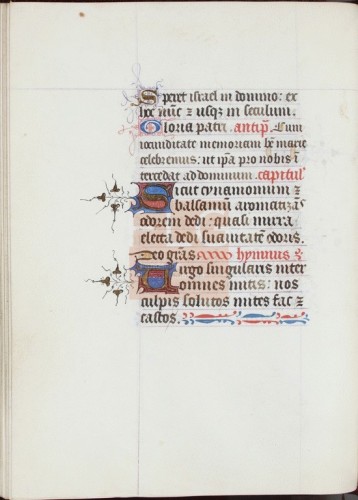 Speret israel in domino: ex
hoc nũc ⁊ usqꝫ in seculum.
Gloria patri. antip̃. Cum
iocunditate memoriam bẽ marie
celebremus: ut ip̃a pro nobis ĩ
tercedat ad dominum. capitul'
Sicut cynamomum ⁊
balsamũ aromatizãs
odorem dedi: quasi mirra
electa dedi suavitatẽ odoris.
Deo gr̃as hymnus
Virgo singularis inter
omnes mitis: nos
culpis solutos mites fac ⁊
castos.